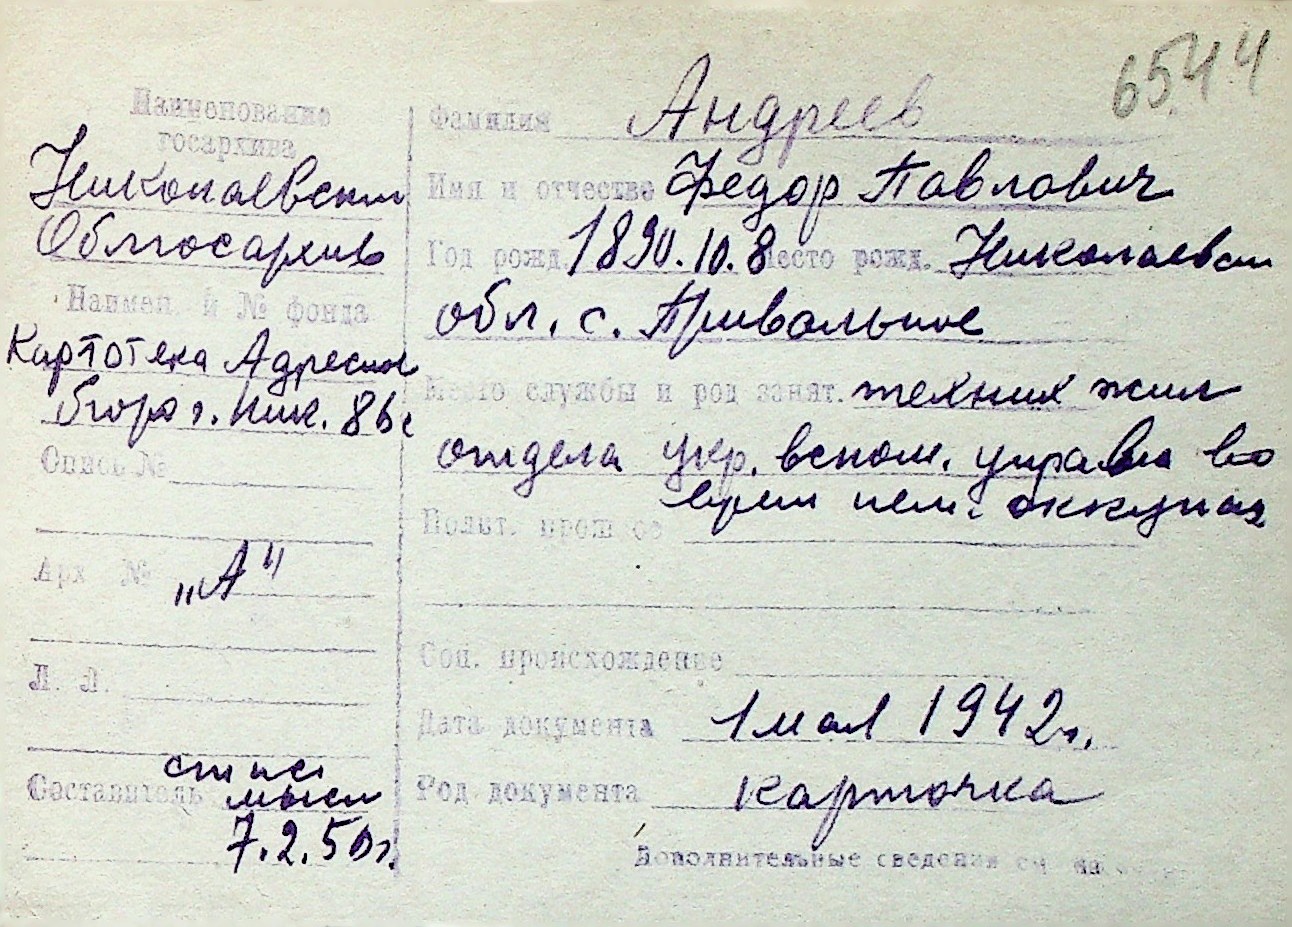 6544
Наименование
госархива
Николаевский
Облгосархив
Наимен. и № фонда
Картотека Адресное
бюро г. Ник. 86с
Опись №
Арх №
„А"
Л. Л.
Составитель
7.2.50г.
Фамилия Андреев
Имя и отчество Федор Павлович
Год рожд. 1890.10.8 Место рожд. Николаевск
обл. с. Привольное
Место службы и род занят. техник жил
отдела укр. вспом. управы во
время нем. оккупац
Полит. прошлое
Соц. происхождение
Дата документа 1 мая 1942г.
Род документа карточка
Дополнительные сведения см на